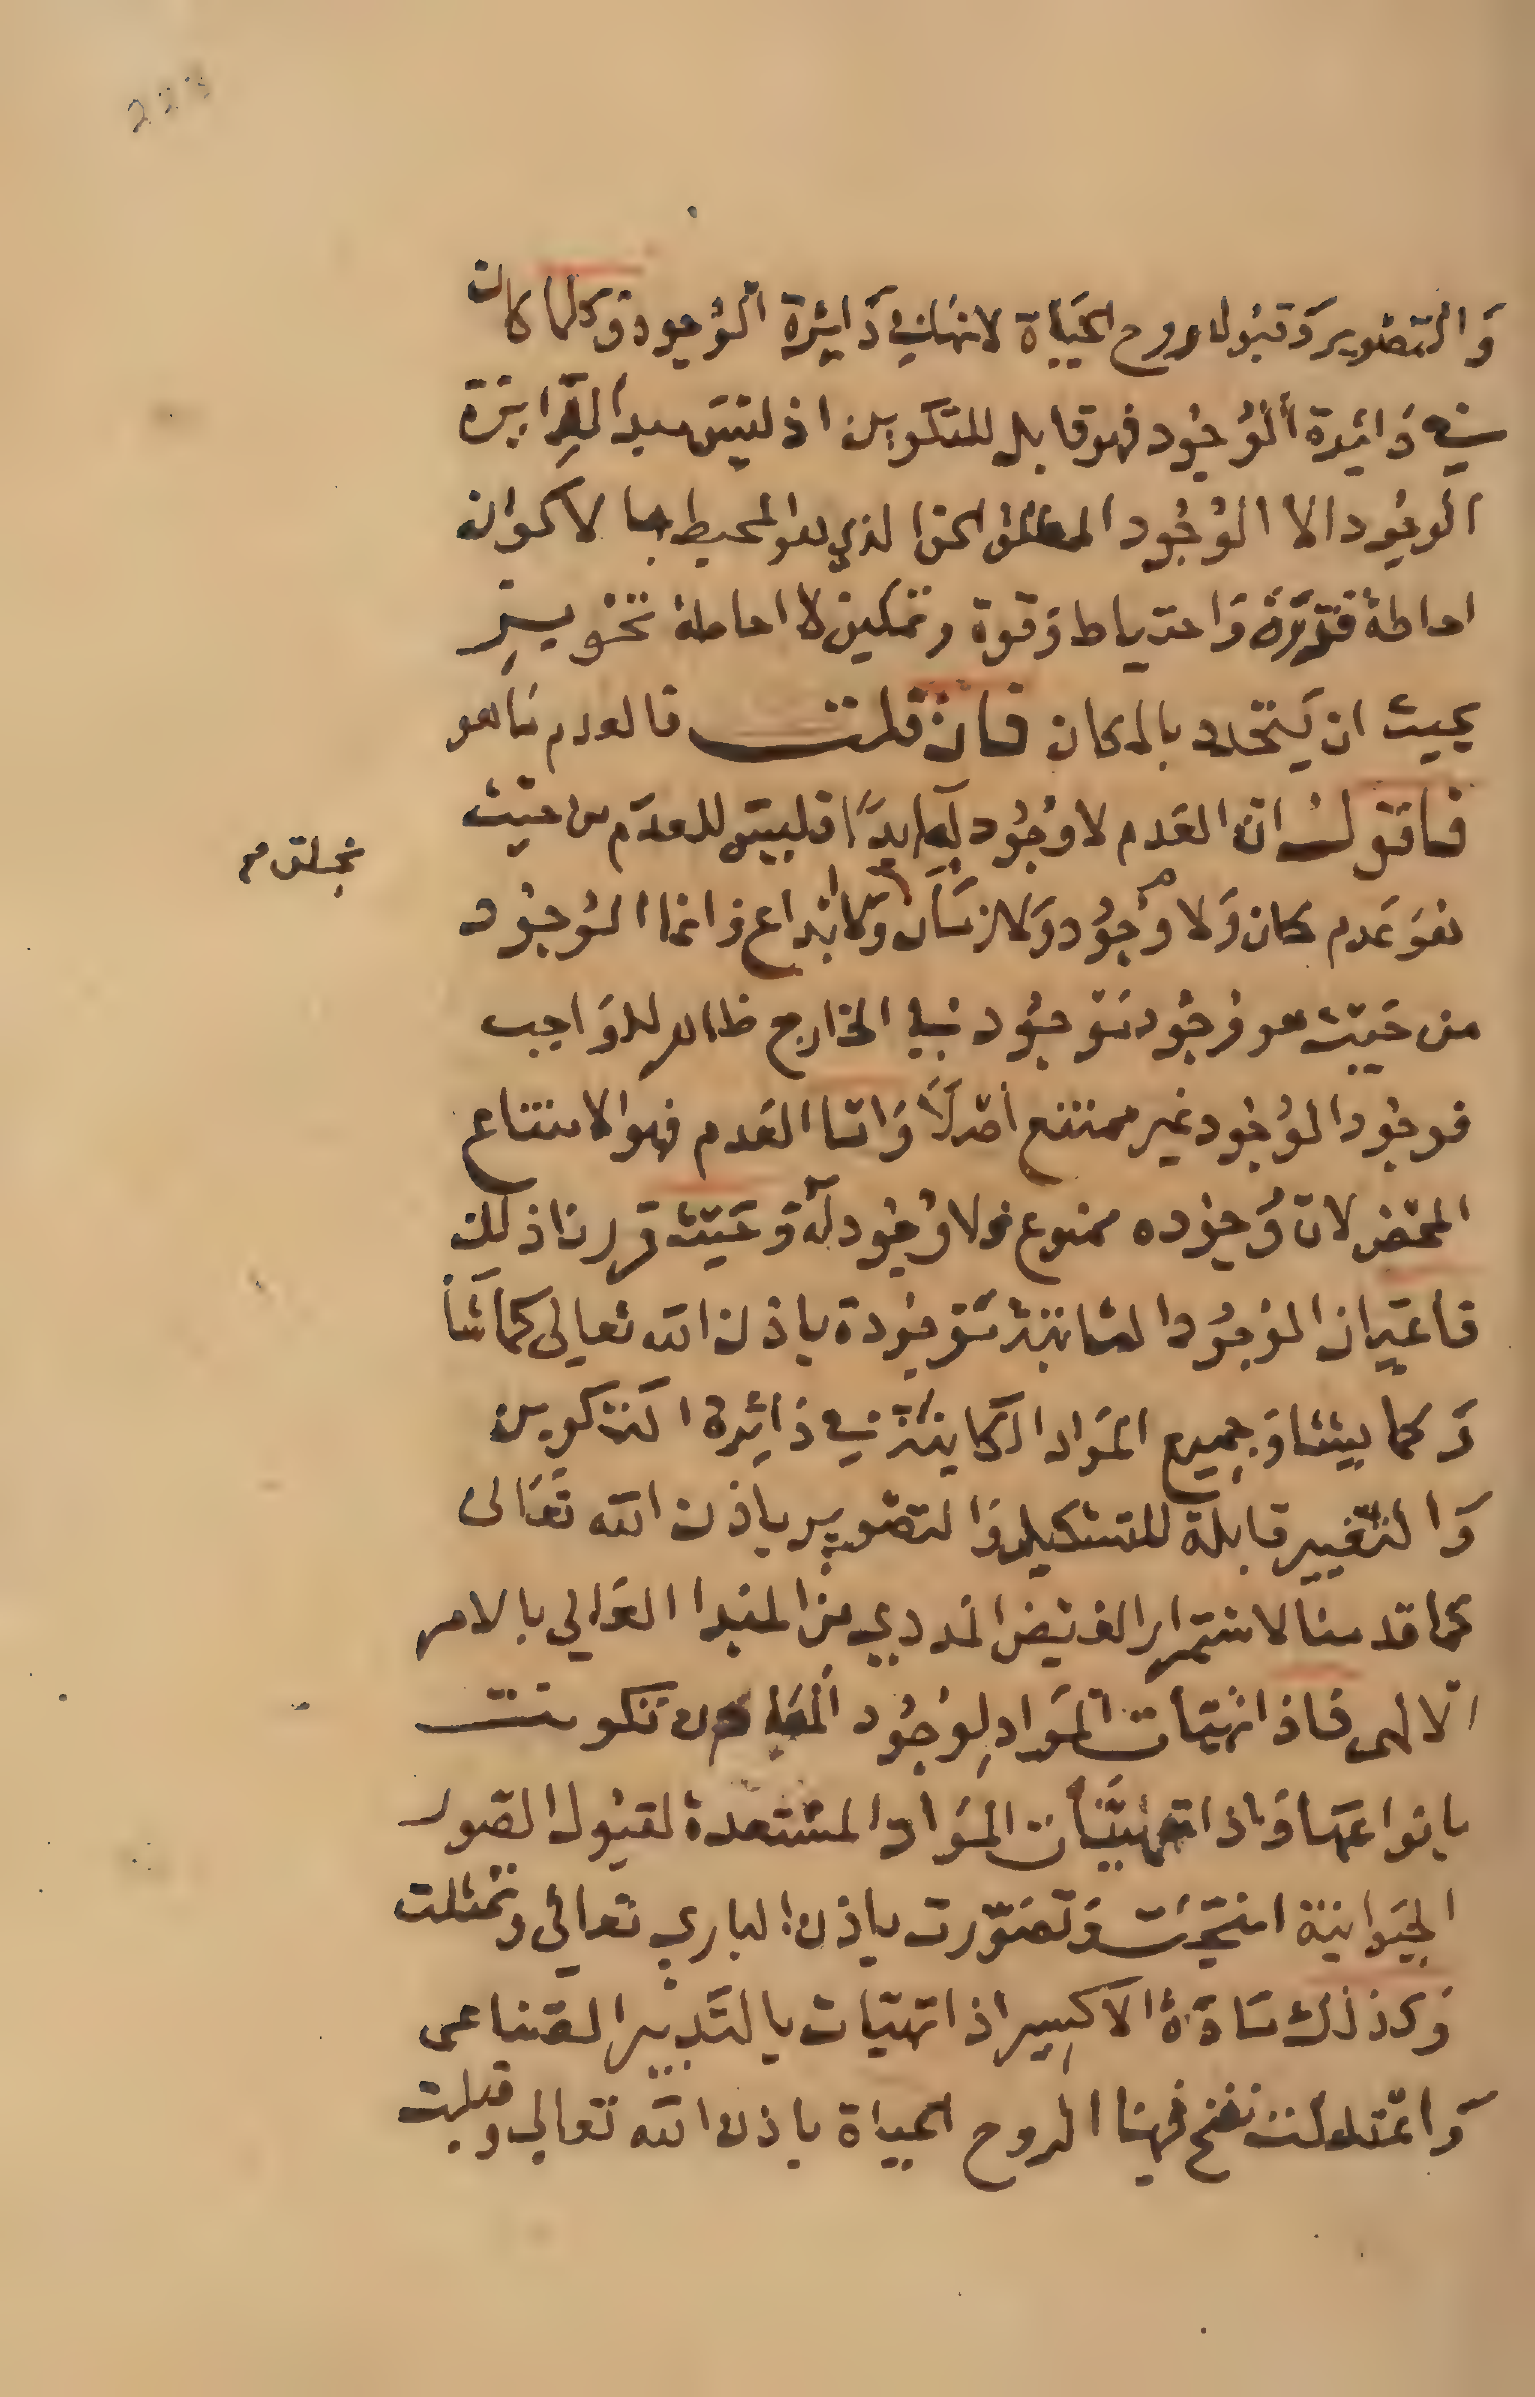 وَالتصْوير وَقبُول روح الحَيَاة لانهَا في دَايرة الوُجود وَكلما كان
في دَايرة الوُجُود فهو قابل للتكوين اذ ليسَ مبدا الدَايرَة
الوجُود الا الوُجُود المطلق الحق الذي هو المحيط بالاكوان
احاطة قدرَة وَاحتياط وَقوة وتمكين لا احاطة تحْويز
بحيث ان يَتحدد بالمكان فان قلت فالعدم مَا هو
فاقول انّ العَدم لا وُجُود لهُ ابدًا فليسَ للعدَم من حيث
هوَ عَدم مكان وَلا وُجُود وَلا زمَان وَلا ابداع وانما الوُجوُد
من حَيث هو وُجُود مَوجُود في الخارج ظاهر للوَاجب
فوجُود الوُجُود غير ممتنع اصْلاً وَامّا العَدم فهو الامتناع
المحْض لانّ وُجوُده ممنوع فلا وُجُود لهُ وَحَيث قررنا ذلك
فاعيَان الوُجوُد الثابتة مَوجُودة باذن الله تعالى كما شَأ
وَكما يشا وَجميع المَواد الكاينة في دَائِرة التكوين
وَالتغيير قابلة للتشكيل وَالتصْوير باذن الله تعَالى
كما قدمنا لاستمرار الفيْض المَددي من المبْدا العَالي بالامر
الالهى فاذا تهيَات المَواد لِوجُود المَعادن تكونت
بانواعهَا وَاذا تهيَّأت المَواد المسْتعدة لقبُول الصور
الحيَوانية انتجَت وَتصَوّرت باذن الباري تعالى وتمثلت
وَكذلك مَادَة الاكسير اذا تهيّات بالتَدبير الصناعى
وَاعْتدلت نفخ فيها الروح الحياة باذن الله تعالى وقبلت